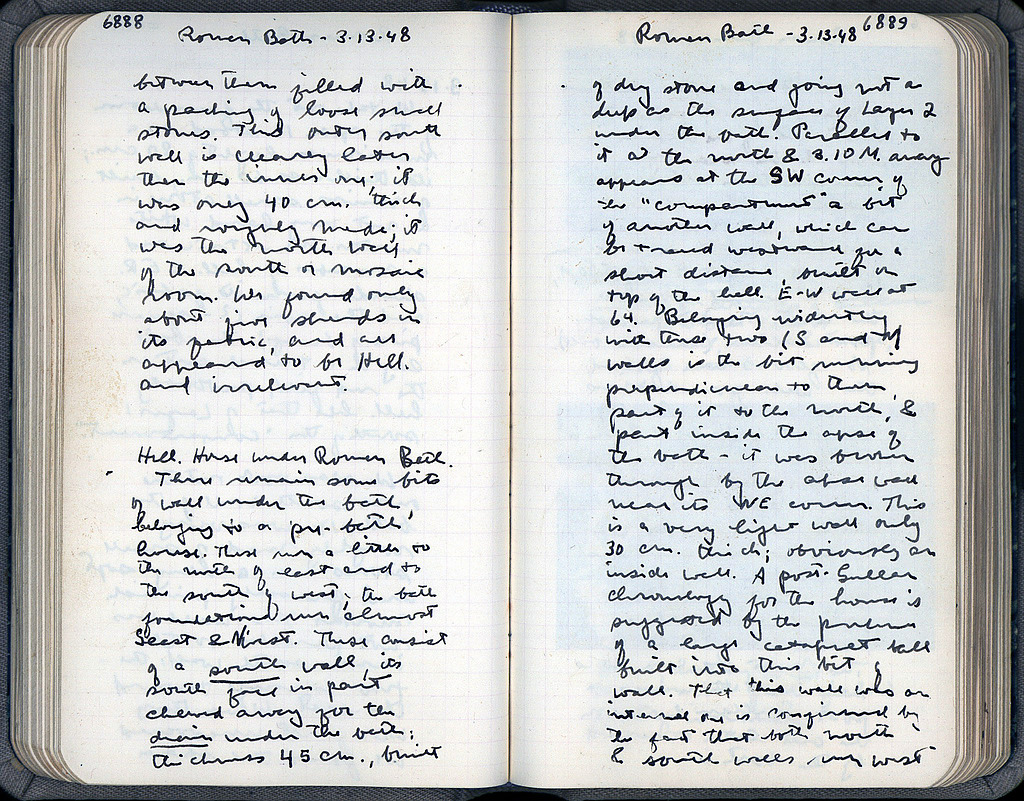 6888
Roman Bath - 3.13.48
between them filled with
a packing of loose small
stones. This outer south
wall is clearly later
than the inner one; it
was only 40 cm. thick
and roughly made; it
was the north wall
of the south or mosaic
room. We found only
about five sherds in
its fabric, and all
appeared to be Hell.
and irrelevant.
Hell. House under Roman Bath.
There remain some bits
of wall under the bath,
belonging to a pre-bath
house. These run a little to
the north of east and to
the south of west; the bath
foundations run almost
East & West. These consist
of a south wall, its
south face in part
chewed away for the
drain under the bath;
thickness 45 cm., built
6889
Roman Bath - 3.13.48
of dry stone and going not as
deep as the surface of Layer 2
under the bath. Parallel to
it at the north & 3.10 M. away
appears at the SW corner of
the "compartment" a bit
of another wall, which can
be traced westward for a
short distance, built on
top of the Hell. E-W wall at
64. Belonging evidently
with these two (S and N)
walls is the bit running
perpendicular to them,
part of it to the north, &
part inside the apse of
the bath - it was broken
through by the apse wall
near its NE corner. This
is a very light wall only
30 cm. thick; obviously an
inside wall. A post-Sullan
chronology for the house is
suggested by the presence
of a large catapult ball
built into this bit of
wall. That this wall was an
internal one is confirmed by
the fact that both north
& south walls run west